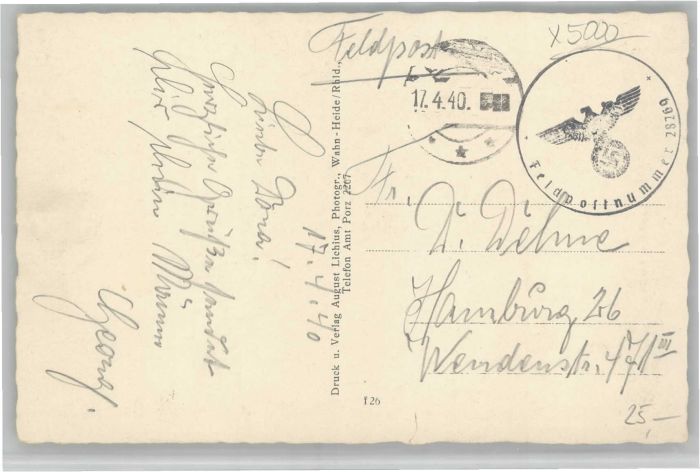 Feldpost
x5000
17.4.40.
Feldpostnummer 28769
17.4.40
Liebe Dora!
Herzliche Grüße sendet
Dir Dein Mann
Georg.
Druck u. Verlag August Lichius, Photogr., Wahn-Heide/Rhld.,
Telefon Amt Porz 2267
126
Fr.
D. Dehne
Hamburg 26
Wendenstr. 471 III
25,—